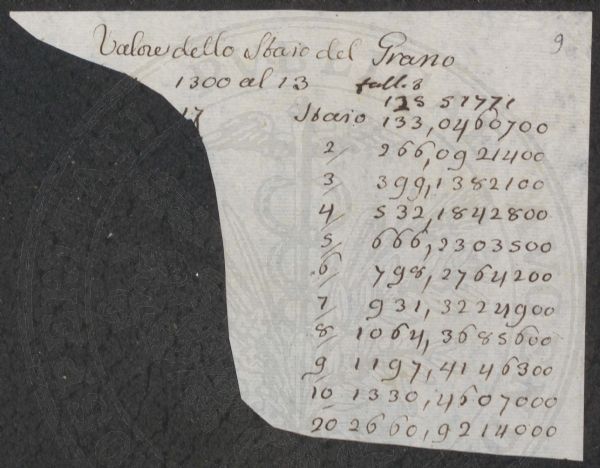 9
Valore dello Staio del Grano
1300 al 13
51771
17 Staio 133,0460700
2/ 266,0921400
3/ 399,1382100
4/ 532,1842800
5/ 666,2303500
6/ 798,2764200
7/ 931,3224900
8/ 1064,3685600
9 1197,4146300
10 1330,4607000
20 2660,9214000